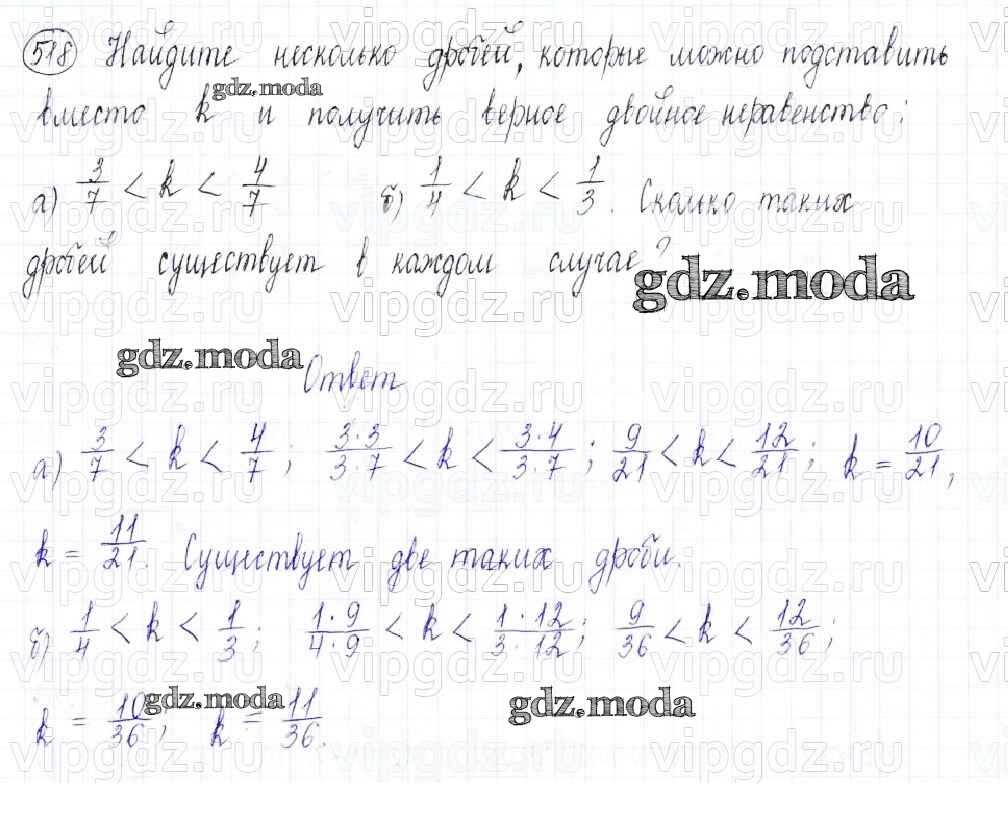 518 Найдите несколько дробей, которые можно подставить
gdz.moda
вместо k и получить верное двойное неравенство:
а) 3/7 < k < 4/7 б) 1/4 < k < 1/3. Сколько таких
дробей существует в каждом случае?
gdz.moda
gdz.moda
Ответ
а) 3/7 < k < 4/7; 3·3/3·7 < k < 3·4/3·7; 9/21 < k < 12/21; k = 10/21,
k = 11/21. Существует две таких дроби.
б) 1/4 < k < 1/3; 1·9/4·9 < k < 1·12/3·12; 9/36 < k < 12/36;
k = 10/36; k = 11/36.
gdz.moda
gdz.moda
vipgdz.ru